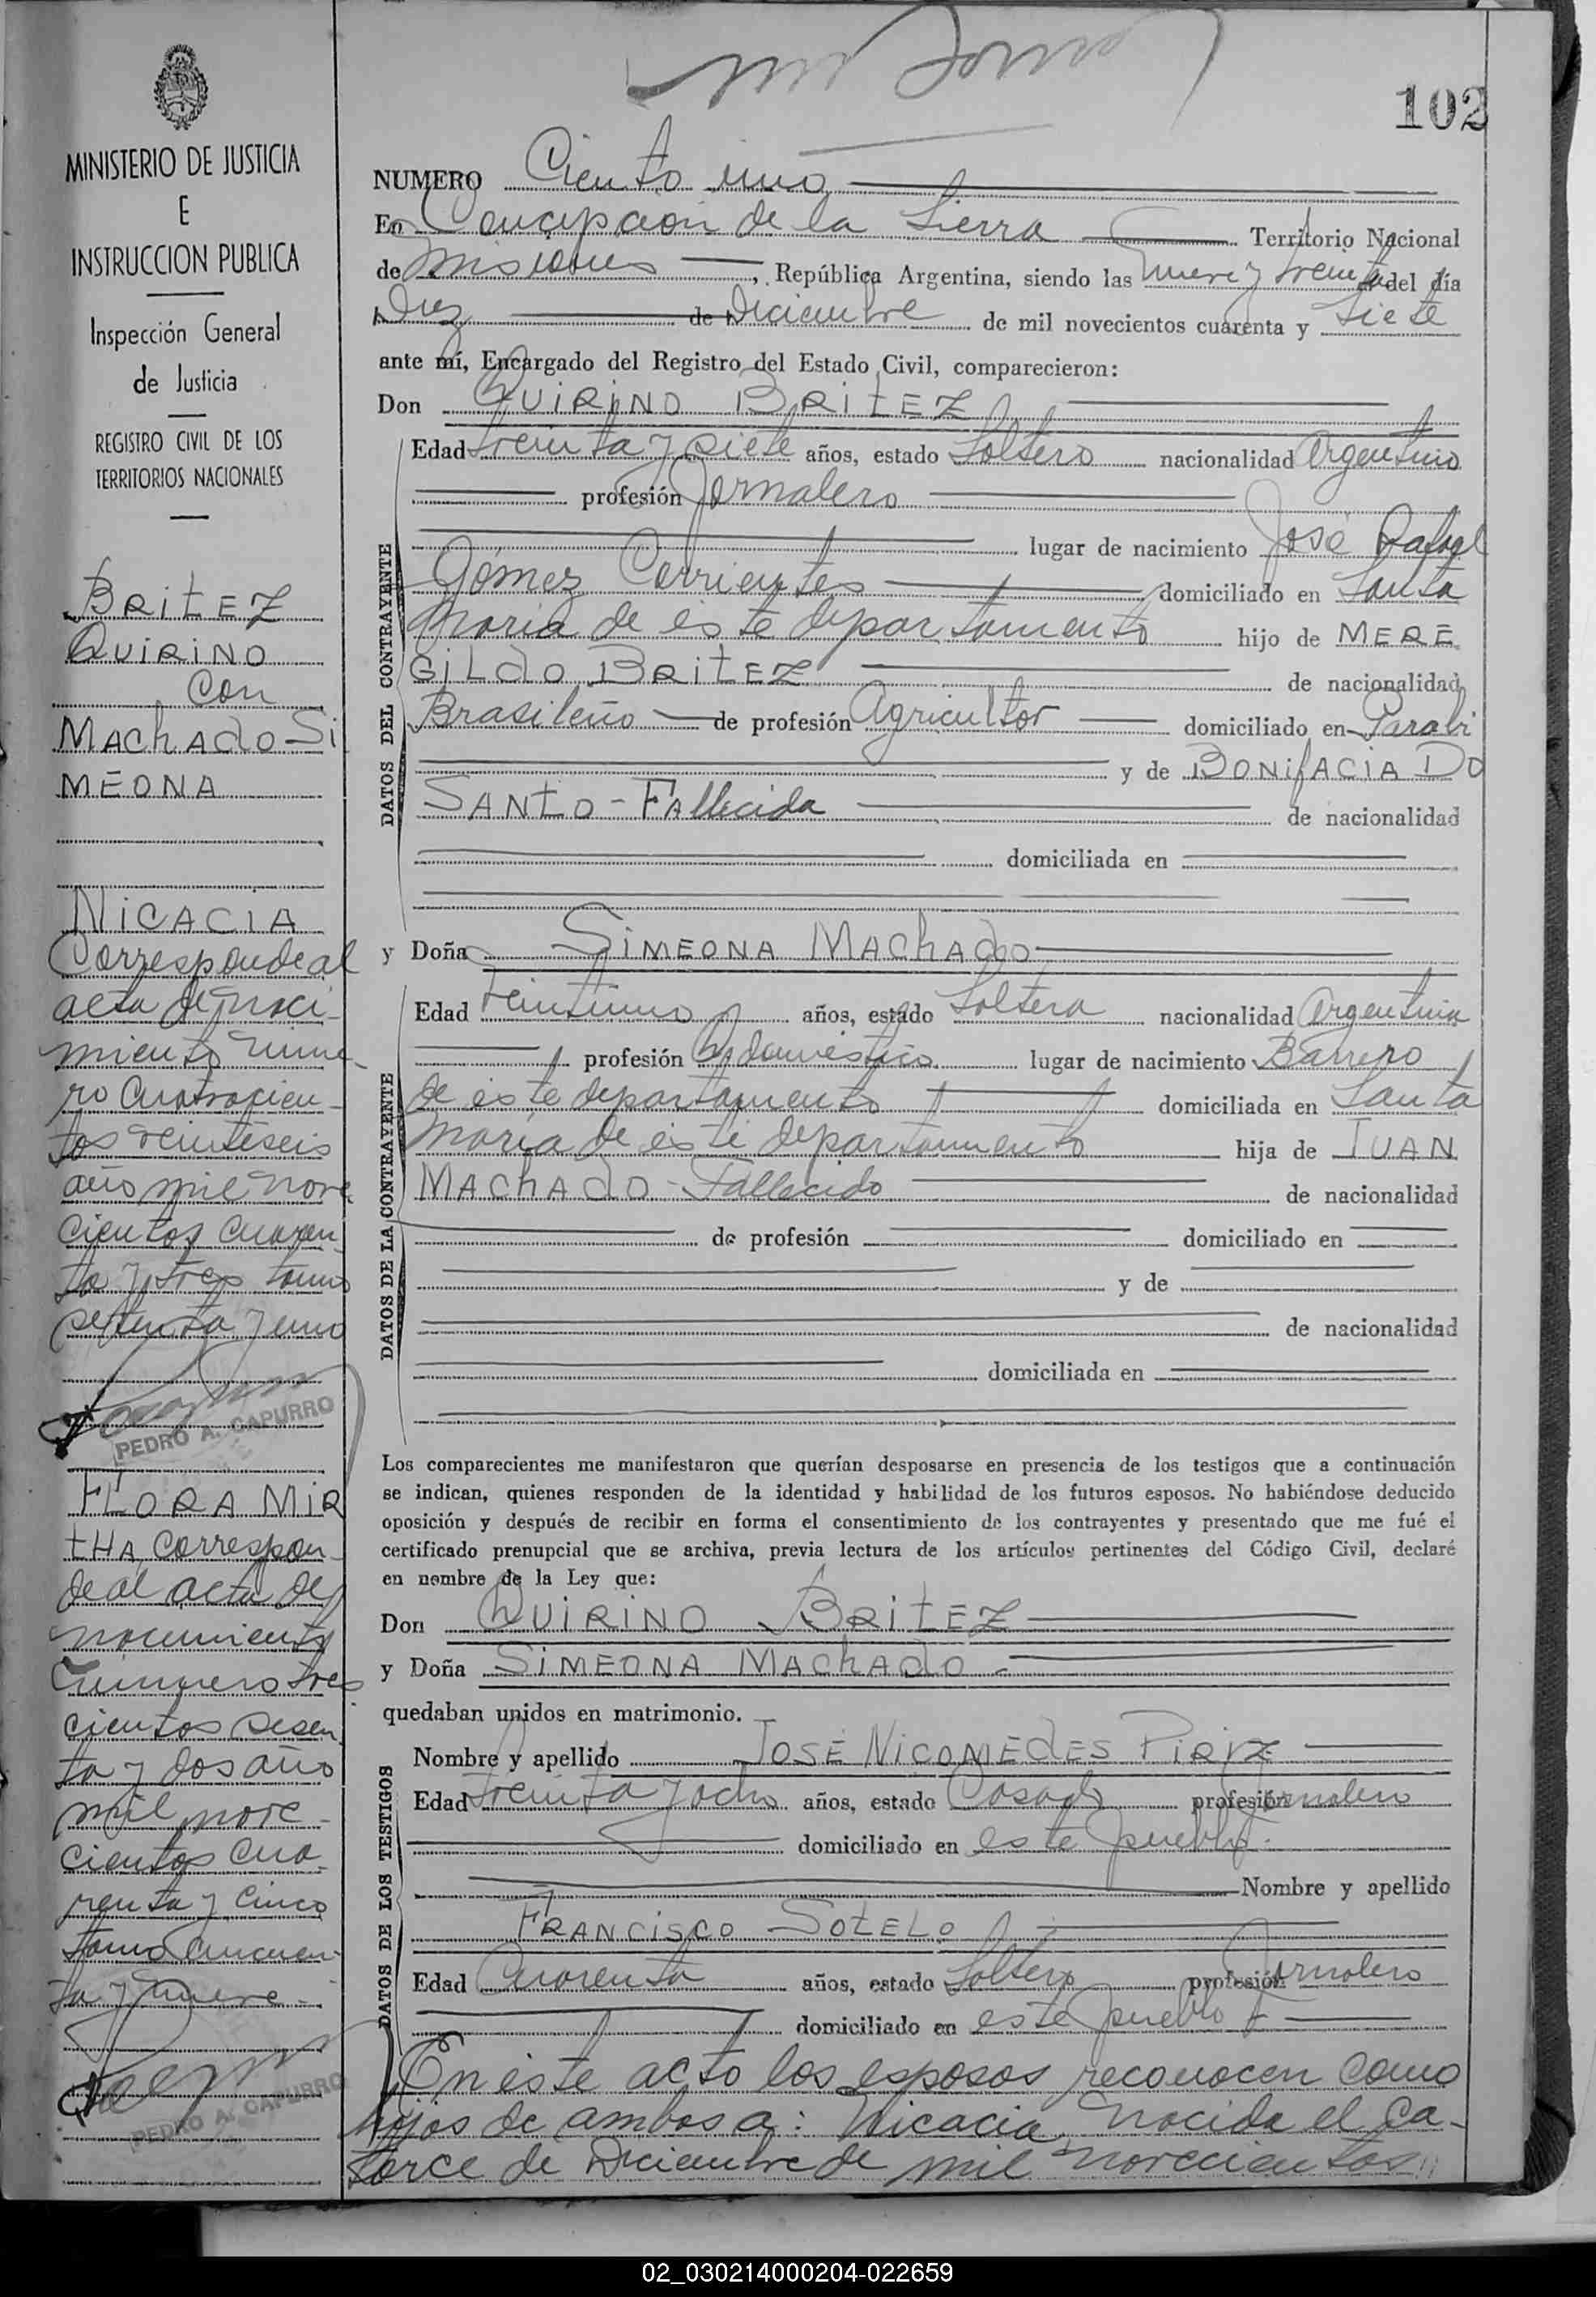 102
MINISTERIO DE JUSTICIA
E
INSTRUCCION PUBLICA
Inspección General
de Justicia
REGISTRO CIVIL DE LOS
TERRITORIOS NACIONALES
BRITEZ
QUIRINO
con
MACHADO SI
MEONA
NICACIA
Corresponde al
acta de naci-
miento núme-
ro cuatrocien-
tos veintiseis
año mil nove
cientos cuaren
ta y tres tomo
setenta y uno
PEDRO A. CAPURRO
FLORA MIR
THA correspon-
de al acta de
nacimiento
número tres
cientos sesen
ta y dos año
mil nove-
cientos cua-
renta y cinco
tomo cincuen-
ta y nueve-
PEDRO A. CAPURRO
NUMERO Ciento uno
En Concepción de la Sierra Territorio Nacional
de Misiones, República Argentina, siendo las nueve y treinta del día
Diez de Diciembre de mil novecientos cuarenta y siete
ante mí, Encargado del Registro del Estado Civil, comparecieron:
Don QUIRINO BRITEZ
DATOS DEL CONTRAYENTE
Edad treinta y siete años, estado Soltero nacionalidad Argentino
profesión Jornalero
lugar de nacimiento José Rafael
Gómez Corrientes domiciliado en Santa
María de éste departamento hijo de MERE
GILDO BRITEZ de nacionalidad
Brasileño de profesión Agricultor domiciliado en Garabi
y de BONIFACIA DO
SANTO - FAllecida de nacionalidad
domiciliada en
y Doña SIMEONA MACHADO
DATOS DE LA CONTRAYENTE
Edad veintiuno años, estado Soltera nacionalidad Argentina
profesión Q. domésticos lugar de nacimiento Barrero
de éste departamento domiciliada en Santa
María de éste departamento hija de JUAN
MACHADO - Fallecido de nacionalidad
de profesión domiciliado en
y de
de nacionalidad
domiciliada en
Los comparecientes me manifestaron que querían desposarse en presencia de los testigos que a continuación
se indican, quienes responden de la identidad y habilidad de los futuros esposos. No habiéndose deducido
oposición y después de recibir en forma el consentimiento de los contrayentes y presentado que me fué el
certificado prenupcial que se archiva, previa lectura de los artículos pertinentes del Código Civil, declaré
en nombre de la Ley que:
Don QUIRINO BRITEZ
y Doña SIMEONA MACHADO
quedaban unidos en matrimonio.
DATOS DE LOS TESTIGOS
Nombre y apellido JOSÉ NICOMEDES PIRIZ
Edad treinta y ocho años, estado Casado profesión Jornalero
domiciliado en este pueblo.
Nombre y apellido
FRANCISCO SOTELO
Edad Cuarenta años, estado Soltero profesión Jornalero
domiciliado en este pueblo
En éste acto los esposos reconocen como
hijos de ambos a: Nicacia, nacida el ca-
torce de Diciembre de mil novecientos
02_030214000204-022659